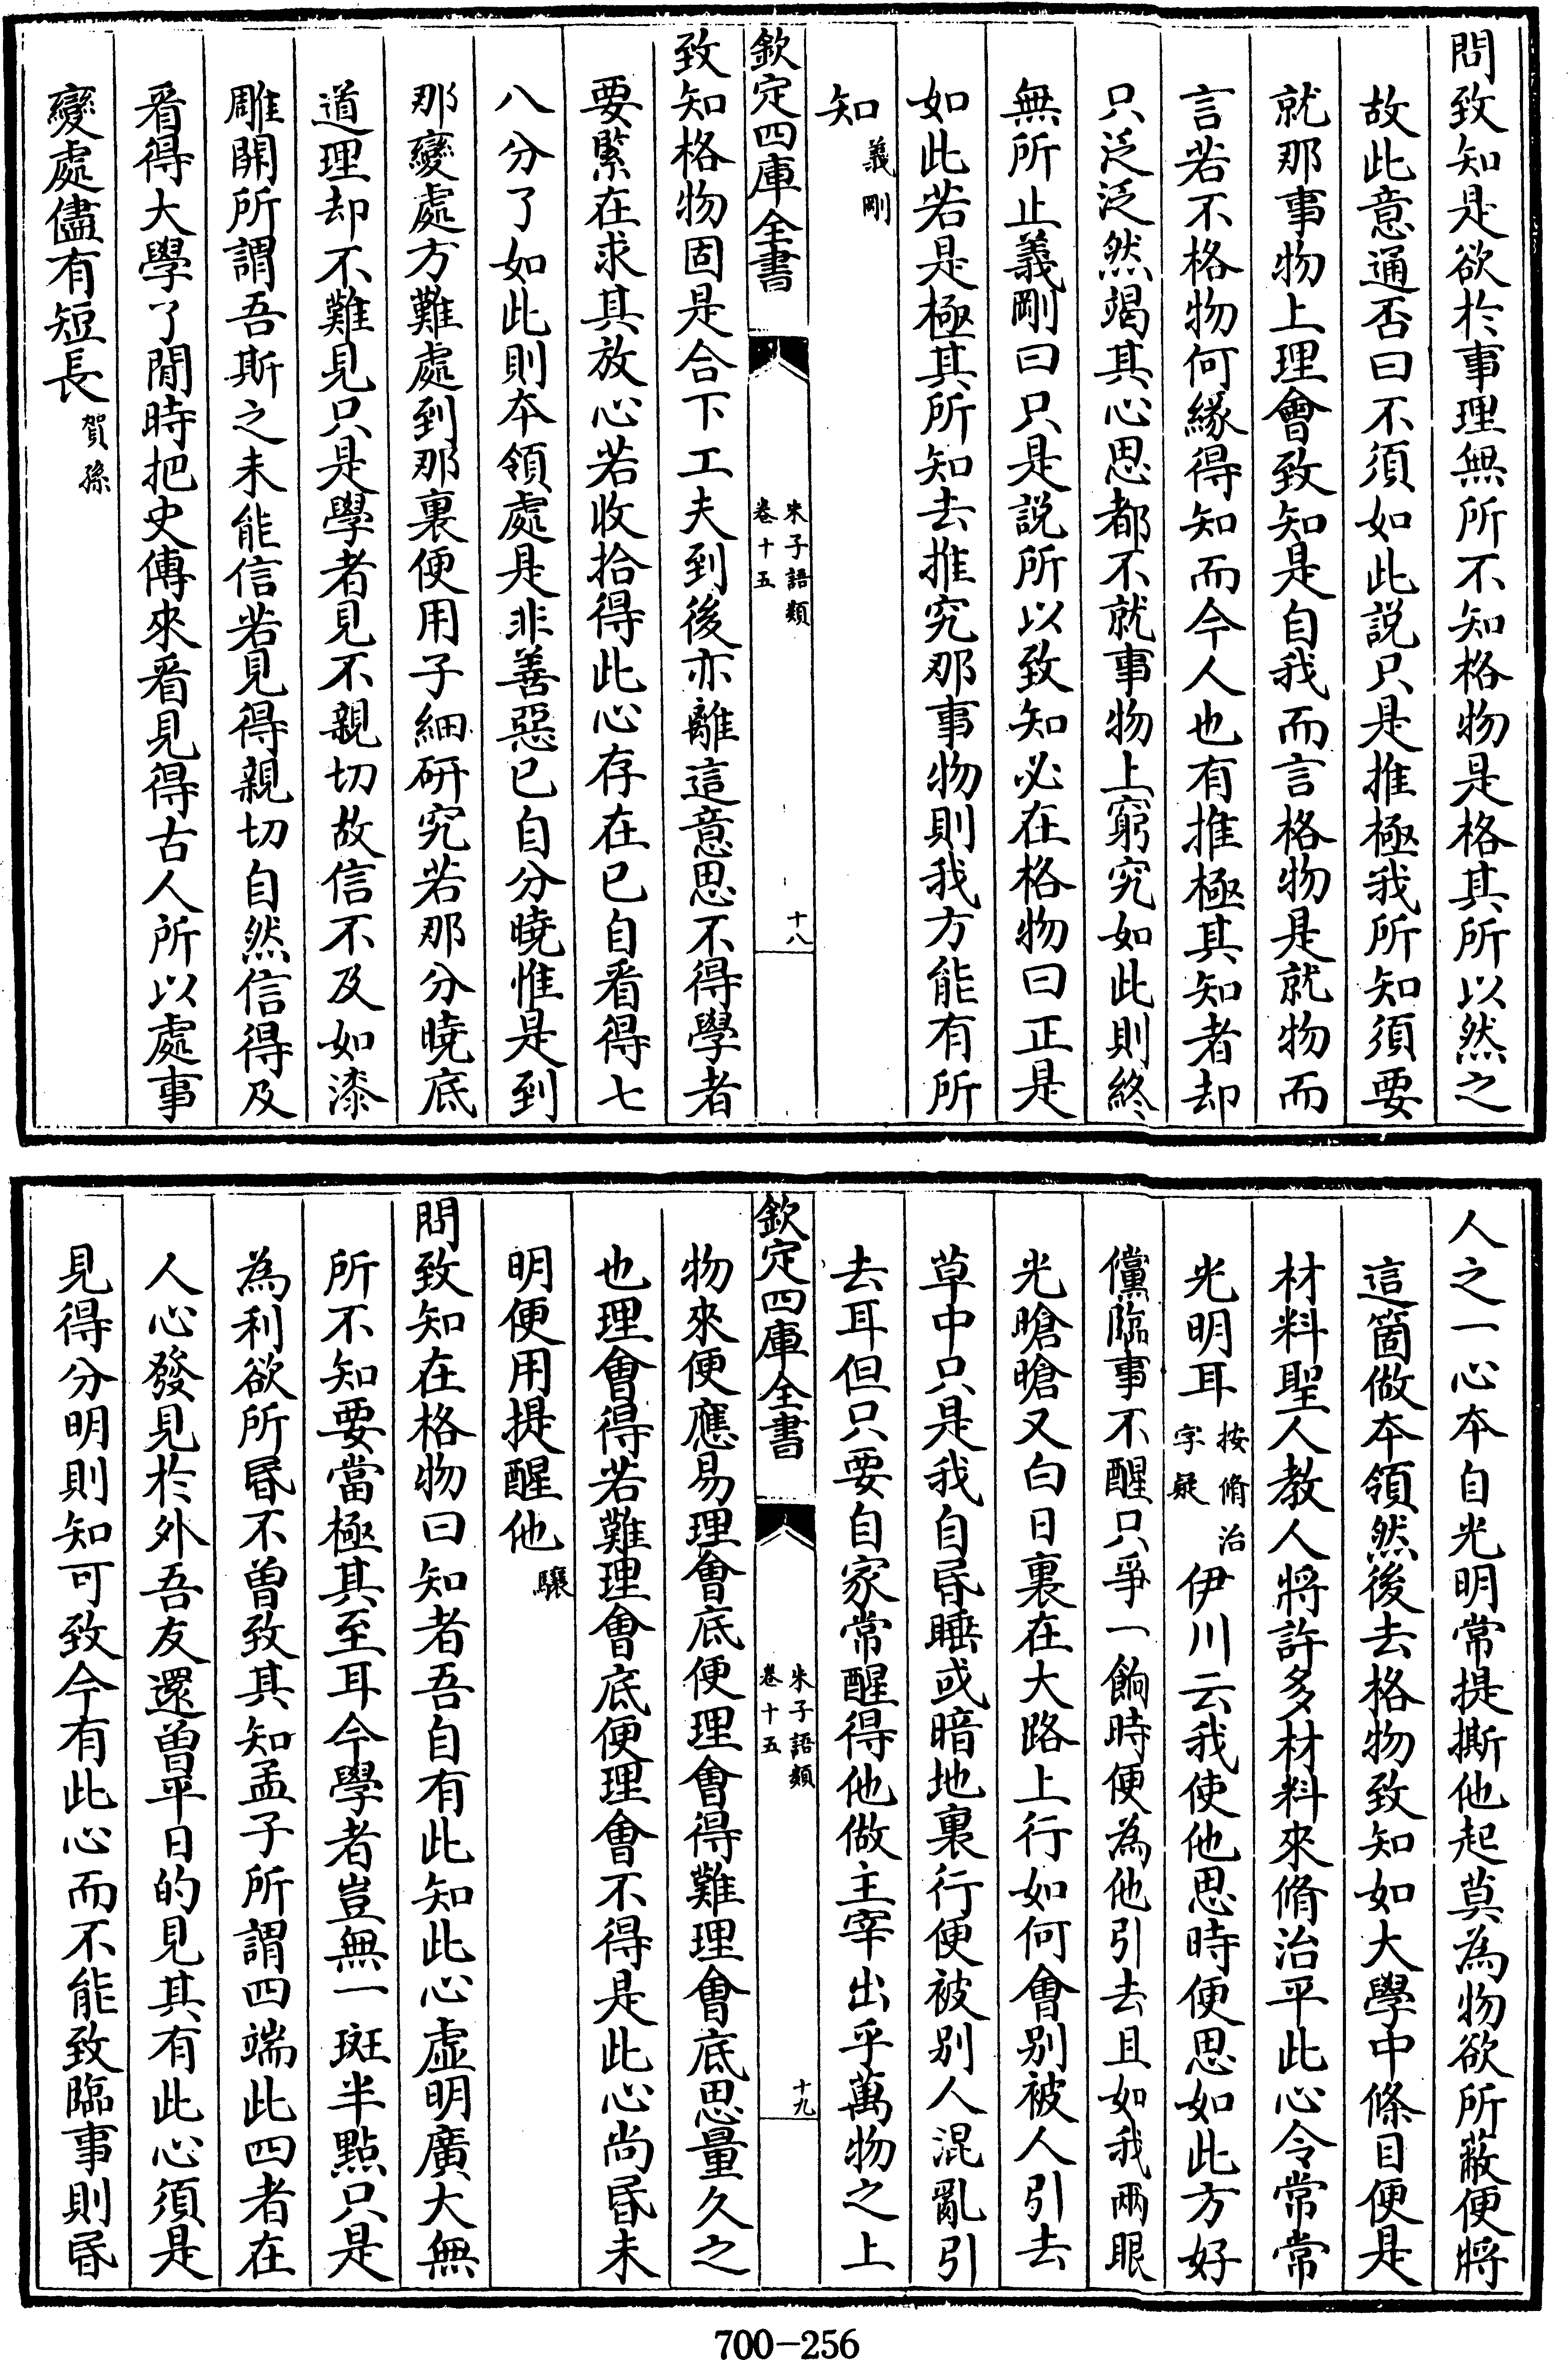 問致知是欲於事理無所不知格物是格其所以然之
故此意通否曰不須如此説只是推極我所知須要
就那事物上理會致知是自我而言格物是就物而
言若不格物何緣得知而今人也有推極其知者却
只泛泛然竭其心思都不就事物上窮究如此則終
無所止義剛曰只是説所以致知必在格物曰正是
如此若是極其所知去推究那事物則我方能有所
知義剛
欽定四庫全書
朱子語類
卷十五
十八
致知格物固是合下工夫到後亦離這意思不得學者
要緊在求其放心若收拾得此心存在已自看得七
八分了如此則本領處是非善惡已自分曉惟是到
那變處方難處到那裏便用子細研究若那分曉底
道理却不難見只是學者見不親切故信不及如漆
雕開所謂吾斯之未能信若見得親切自然信得及
看得大學了閒時把史傳來看見得古人所以處事
變處儘有短長賀孫
人之一心本自光明常提撕他起莫為物欲所蔽便將
這箇做本領然後去格物致知如大學中條目便是
材料聖人教人將許多材料來脩治平此心令常常
光明耳按脩治字疑伊川云我使他思時便思如此方好
儻臨事不醒只爭一餉時便為他引去且如我兩眼
光䁬䁬又白日裏在大路上行如何會别被人引去
草中只是我自昏睡或暗地裏行便被别人混亂引
去耳但只要自家常醒得他做主宰出乎萬物之上
欽定四庫全書
朱子語類
卷十五
十九
物來便應易理會底便理會得難理會底思量久之
也理會得若難理會底便理會不得是此心尚昏未
明便用提醒他驤
問致知在格物曰知者吾自有此知此心虛明廣大無
所不知要當極其至耳今學者豈無一斑半點只是
為利欲所昏不曾致其知孟子所謂四端此四者在
人心發見於外吾友還曾平日的見其有此心須是
見得分明則知可致今有此心而不能致臨事則昏
700-256